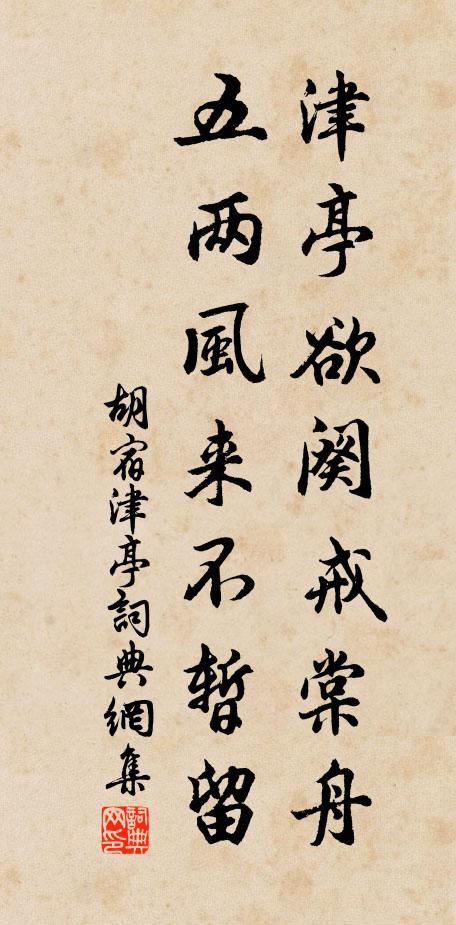 津亭欲闋戒棠舟
五两風来不暫留
胡宿津亭詞典網集
詞典网印